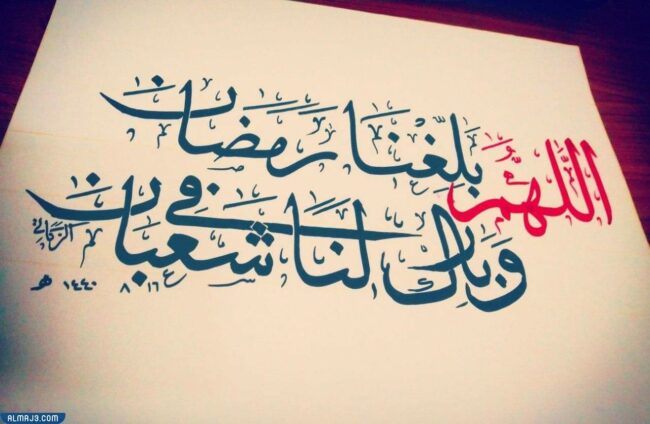 اللَّهُمَّ بَلِّغْنَا رَمَضَان
وَبَارِك لَنَا فِي شَعْبَان
١٦ ٨ ١٤٤٠ هـ
ALMAJ3.COM